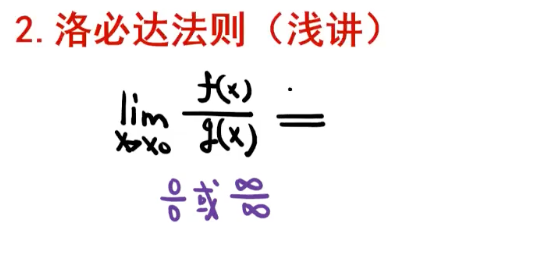 2.洛必达法则（浅讲）
lim x→x₀ f(x)/g(x) =
0/0 或 ∞/∞